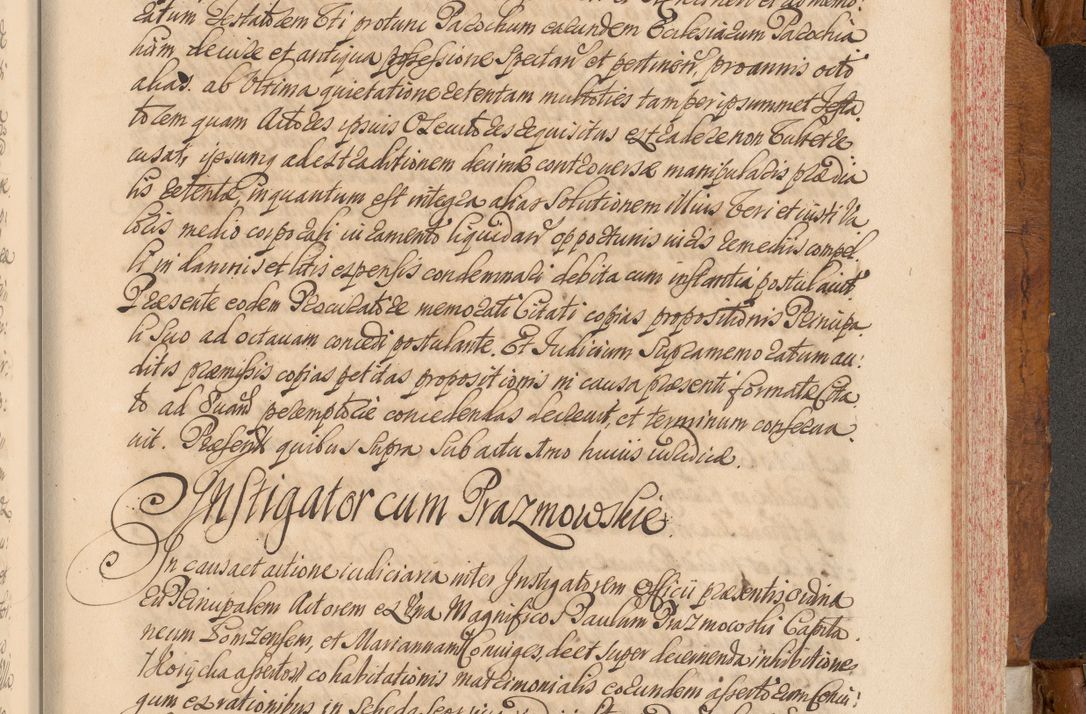 zatum Testatorem Eti protunc Parochum earundem Ecclesiarum Parochia
lium, de iure et antiqua possessione Spectan et pertinen, pro annis octo
alias ab Ultima quietatione retentam multoties tam per ipsummet Testa
torem quam Actores ipsuis Executores requisitus extradere non Curet re
cusat, ipsumq ad extraditionem decimæ controversæ manipularis prædia
lis retentæ, in quantum est integra alias Solutionem illius Veri et iusti Va
loris medio corporali iuramento liquidan opportunis iuris remediis compel
li in damnis et litis expensis condemnari debita cum instantia postulavit.
Præsente eodem Procuratore memorati Citati copias propositionis Principa
li Suo ad octavam concedi postulante. Et Judicium Supramemoratum au:
ditis præmissis copias petitas propositionis in causa præsenti formatæ Cita
to ad 8uam peremptorie concedendas decrevit, et terminum conserva
vit. Præsent quibus Supra Sub actu Imo huius iuridicæ.
Instigator cum Prazmowskie
In causa et actione iudiciaria inter Instigatorem officii præsentis ordina
Et Principalem Actorem ex Una Magnificos Paulum Prazmowski Capita
neum Lomzensem, et Mariannam Coniuges, de et Super decernenda inhibitione
assertos cohabitationis matrimonialis eorundem assertorum Coniu:
gum ex rationibus in Scheda